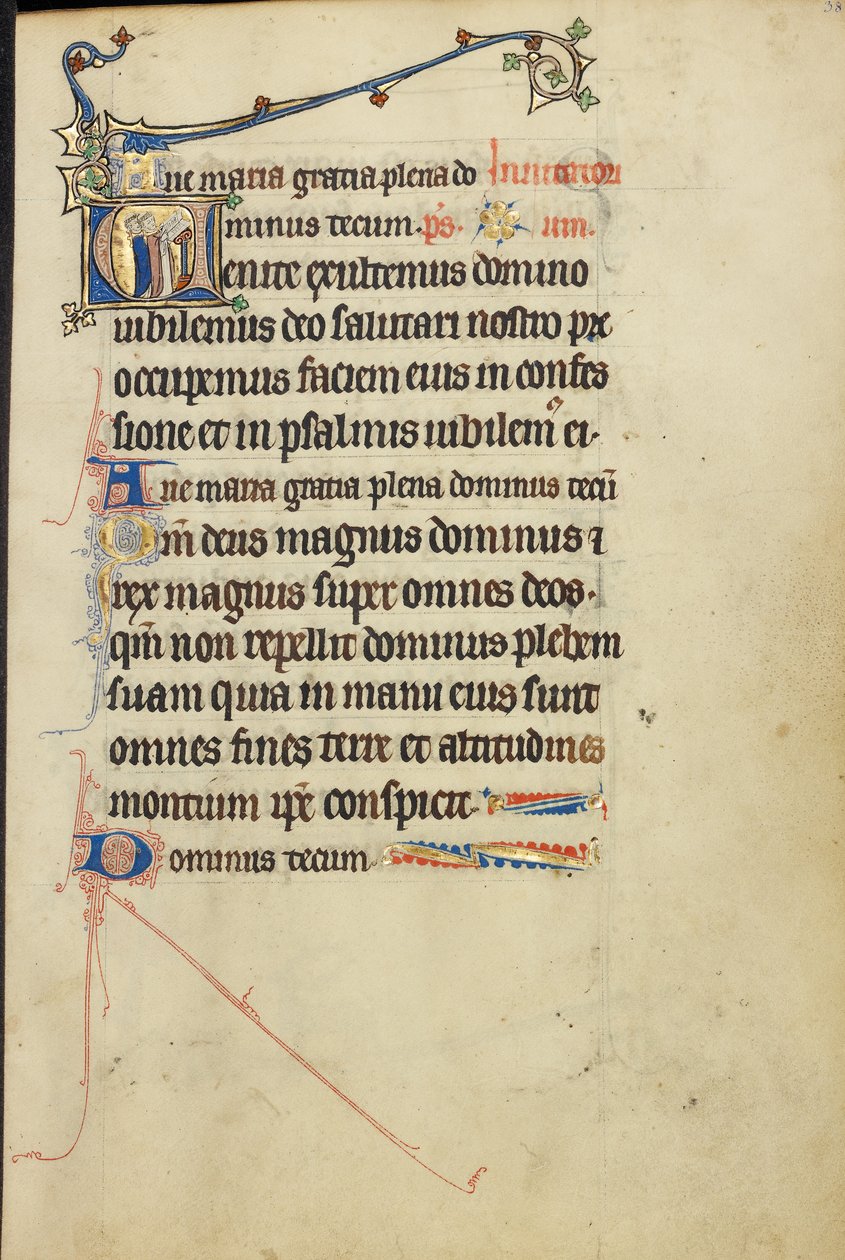 38
Aue maria gratia plena do Inuitatori
minus tecum. p̄s. um.
Uenite exultemus domino
iubilemus deo salutari nostro pre
occupemus faciem eius in confes
sione et in psalmis iubilem᷒ ei.
Aue maria gratia plena dominus tecū
Qm̄ deus magnus dominus ⁊
rex magnus super omnes deos.
qm̄ non repellit dominus plebem
suam quia in manu eius sunt
omnes fines terre et altitudines
montium ip̄e conspicit.
Dominus tecum.